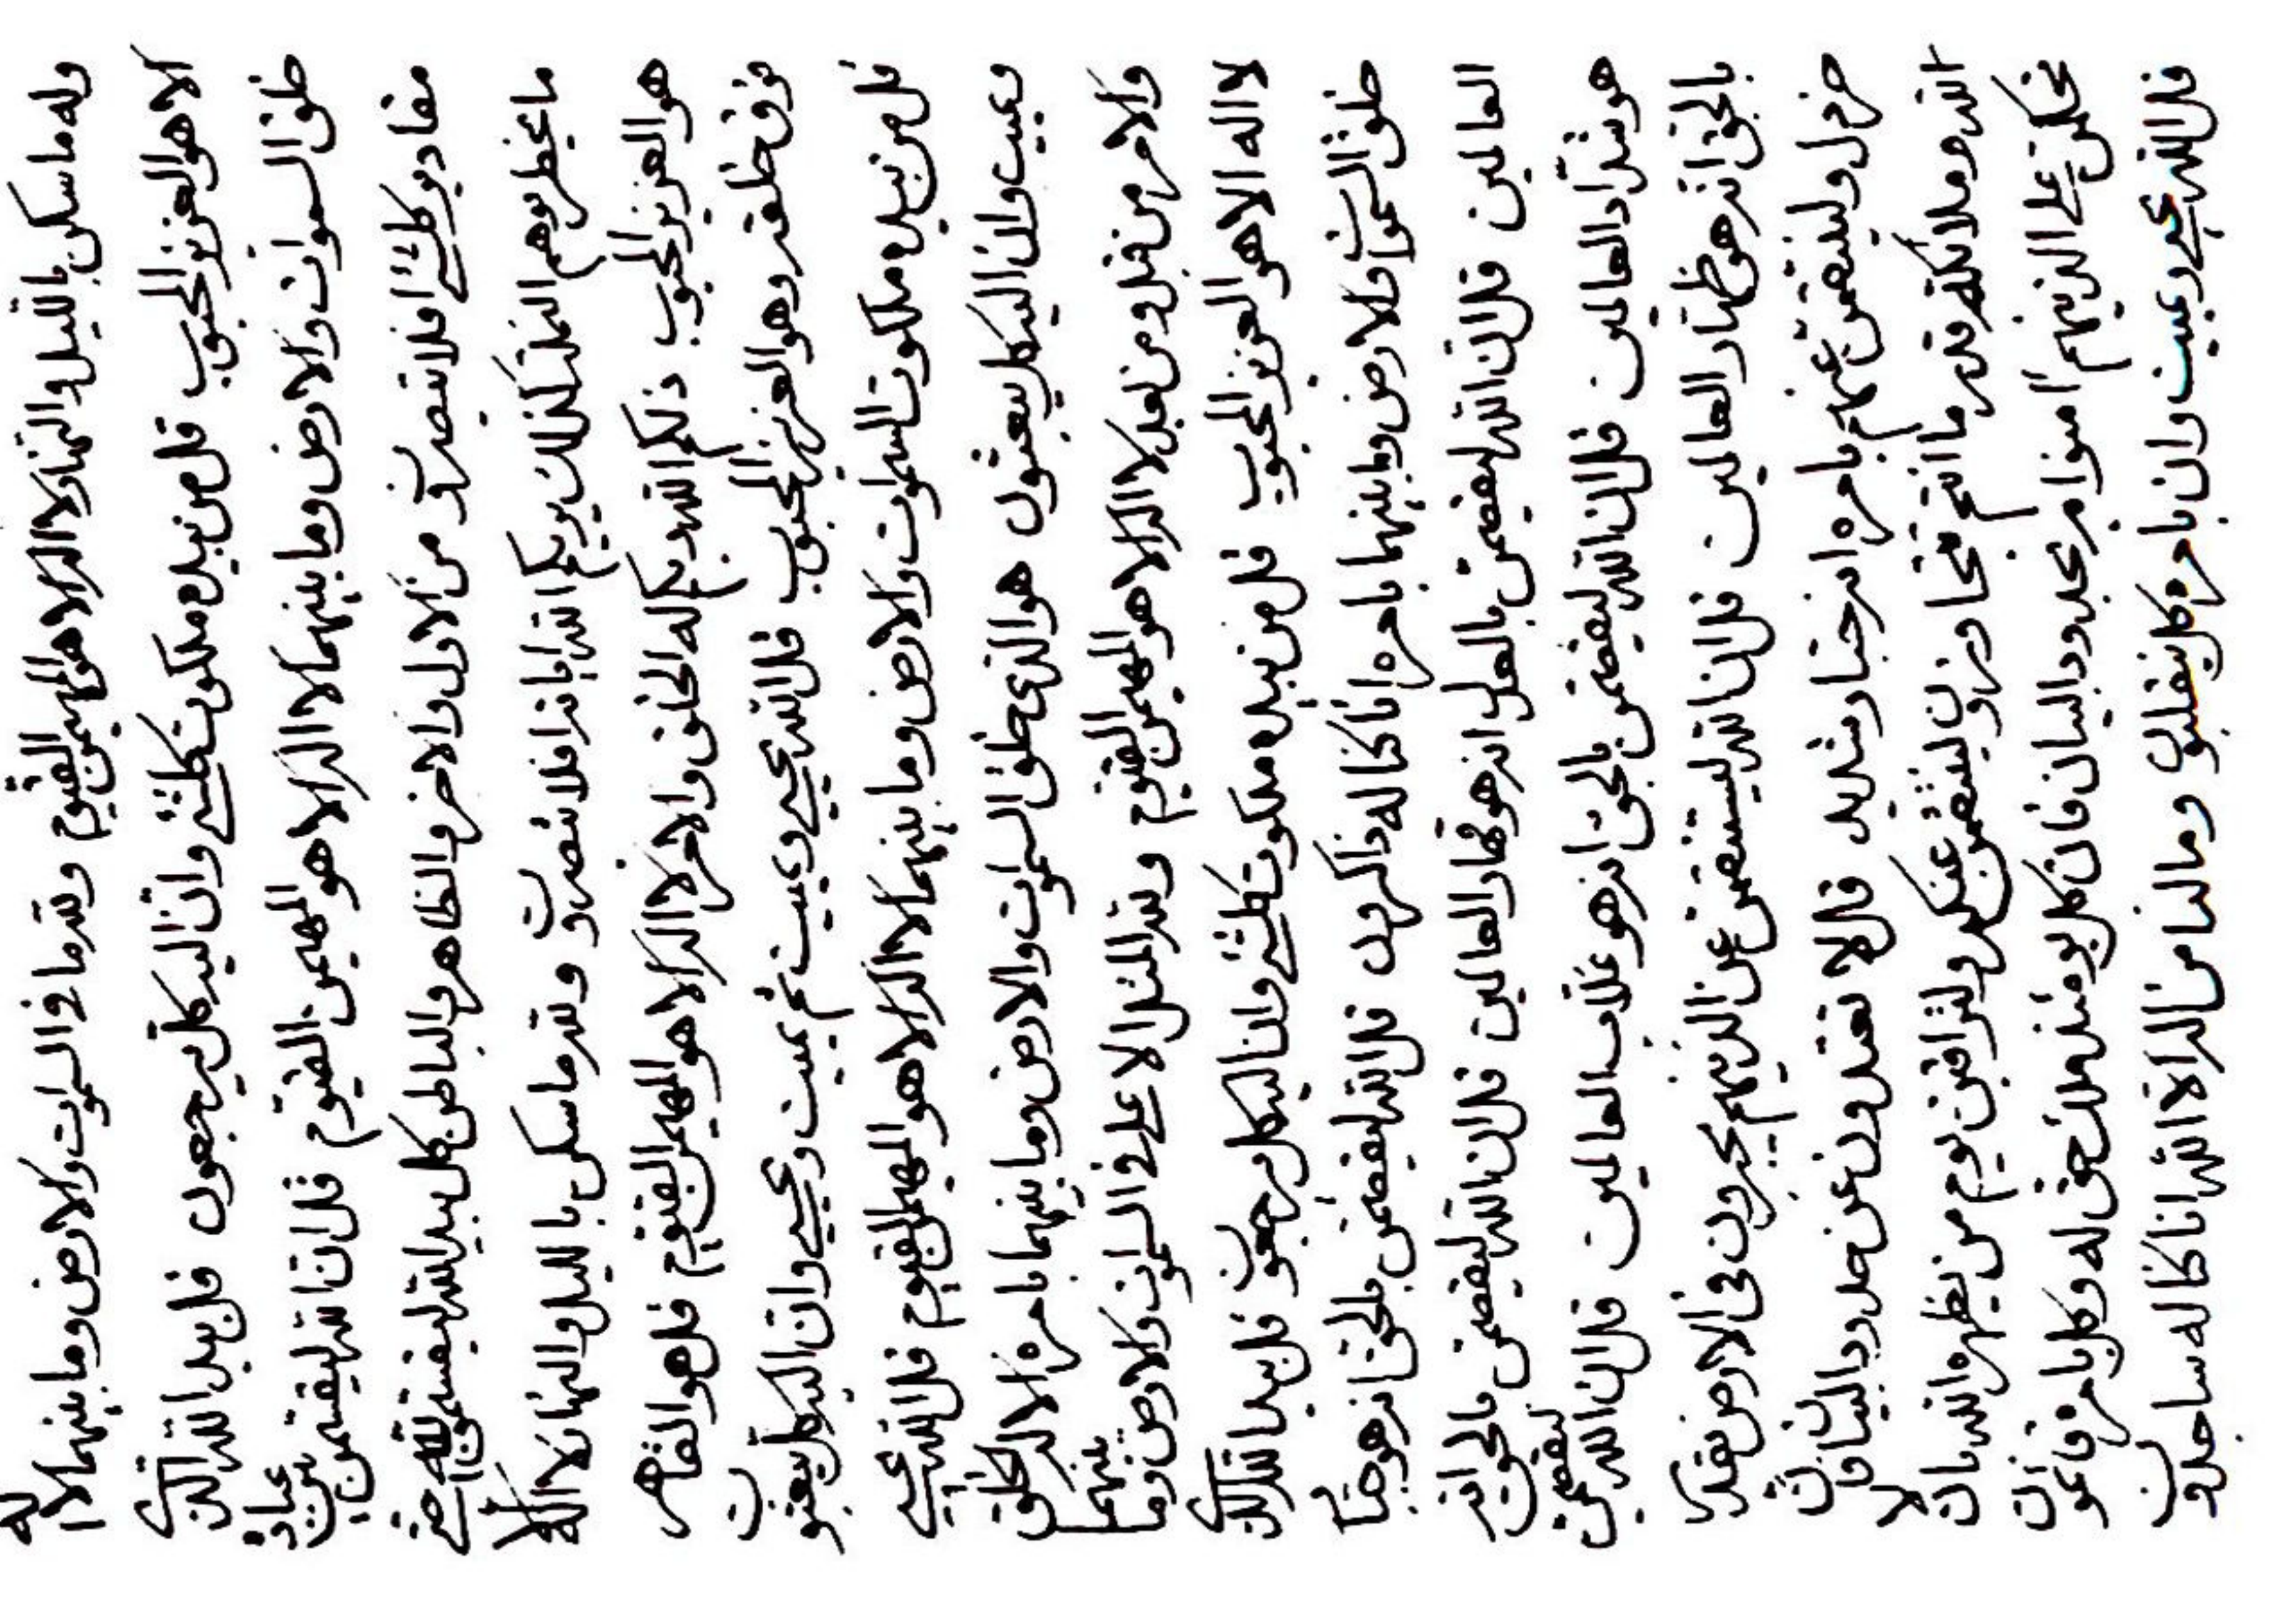 وله ما سكن بالليل والنهار لا اله الا هو المهيمن القيوم ولله ما في السموات والارض وما بينهما لا اله
الا هو العزيز المحبوب قل من بيده ملكوت كلشئ وان اليه كل يرجعون قل بيد الله الذي
خلق السموات والارض وما بينهما لا اله الا هو المهيمن القيوم قل ان الله ليقسمن بين عباده
مقادير كلشئ افلا تبصرون من الاول والاخر والظاهر والباطن كل بيد الله ليقسمن حتى
ما يخطر بوهم النملة كذلك يريكم الله اياته افلا تبصرون ولله ما سكن بالليل والنهار لا اله الا
هو العزيز المحبوب ذلكم الله ربكم له الخلق والامر لا اله الا هو المهيمن القيوم قل هو القاهر
فوق خلقه وهو العزيز المحبوب قل الله يحيي ويميت ثم يميت ويحيي وان اليه كل يبعثون
قل من بيده ملكوت السموات والارض وما بينهما لا اله الا هو المهيمن القيوم قل الله يحيي
ويميت وان اليه كل يبعثون هو الذي خلق السموات والارض وما بينهما بامره الا له الخلق
والامر من قبل ومن بعد لا اله الا هو المهيمن القيوم ولله المثل الاعلى في السموات والارض وما بينهما
لا اله الا هو العزيز المحبوب قل من بيده ملكوت كلشئ وان اليه كل يرجعون قل بيد الله الذي
خلق السموات والارض وما بينهما بامره انا كنا له ذاكرون قل الله ليقصمن بالحق انه هو جبار
العالمين قل ان الله ليقصمن بالعدل انه هو قهار العالمين قل ان الله ليقصمن بالحق انه
هو شداد العالمين قل ان الله ليقصمن بالحق انه هو غلاب العالمين قل ان الله ليقصمن
بالحق انه هو ظهار العالمين قل ان الله لينتقمن عن الذينهم في الارض بقدر
خردل ولينتقمن عنهم بامره انه جبار شديد قل لا تعتدون عن حدود البيان فان
الله وملائكته قدر ما انتم تتجاوزون لينتقمن عنكم ولتراقبن يوم من يظهره الله بان لا
تحكمن على الذينهم امنوا بغير حدود البيان فان كل يومئذ ملك حق له وكل بامره قائمون
قل الله يحيي ويميت وان بامره كل ينقلبون وما لنا من اله الا الله انا كنا له ساجدون